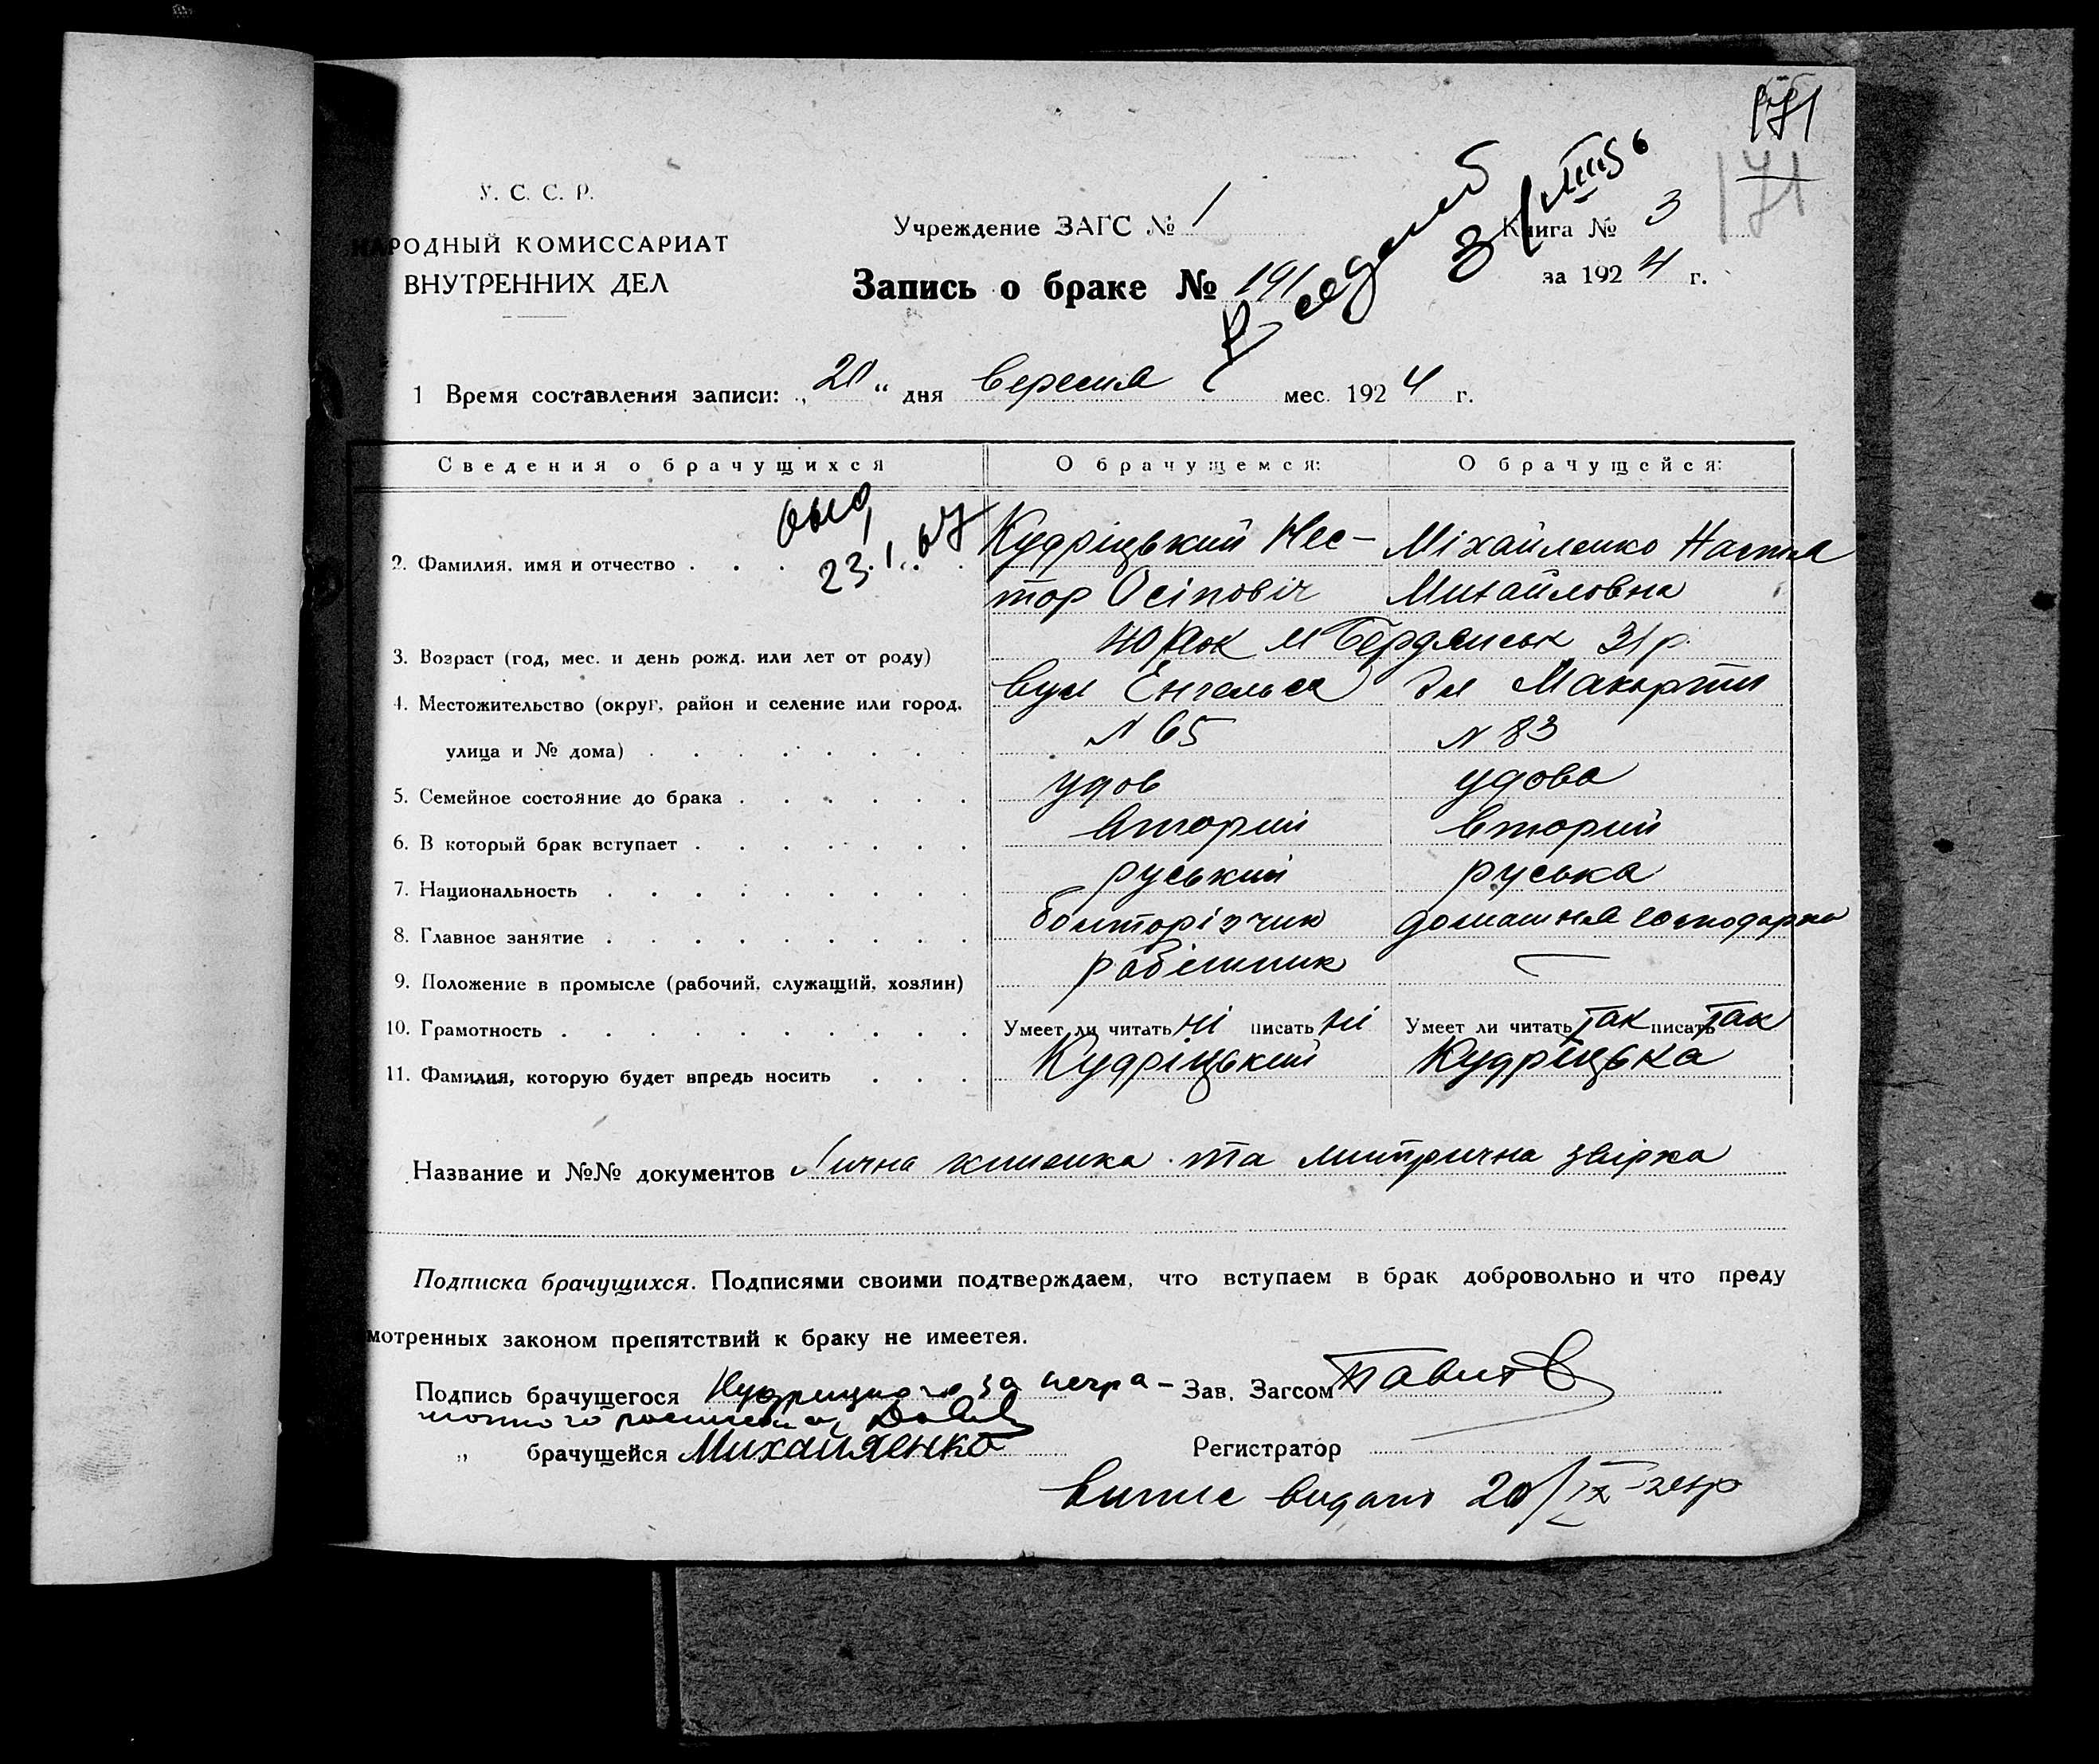 171
171
У. С. С. Р.
НАРОДНЫЙ КОМИССАРИАТ
ВНУТРЕННИХ ДЕЛ
Учреждение ЗАГС № 1
Книга № 3
Запись о браке № 191
за 1924 г.
1 Время составления записи: „20“ дня вересня мес. 1924 г.
Сведения о брачущихся О брачущемся: О брачущейся:
23.I.
2. Фамилия, имя и отчество . . . . Кудріцький Нес- Міхайленко Настя
тор Осіповіч Михайловна
3. Возраст (год, мес. и день рожд. или лет от роду) 40 рок м Бердянськ 31 р.
4. Местожительство (округ, район и селение или город, вул Енгельса
улица и № дома) . . . . . . . . N 65 N 83
5. Семейное состояние до брака . . . . . . удов удова
6. В который брак вступает . . . . . . . вторий вторий
7. Национальность . . . . . . . . . руський руська
8. Главное занятие . . . . . . . . . болторізчик домашня господарка
9. Положение в промысле (рабочий, служащий, хозяин) робітник —
10. Грамотность . . . . . . . . . . Умеет ли читать ні писать ні Умеет ли читать так писать так
11. Фамилия, которую будет впредь носить . . . Кудріцький Кудріцька
Название и №№ документов Лична книжка та митрична звірка
Подписка брачущихся. Подписями своими подтверждаем, что вступаем в брак добровольно и что преду
мотренных законом препятствий к браку не имеется.
Подпись брачущегося Кудрицкого за негра- Зав. Загсом
мотного
„ брачущейся Михайленко Регистратор
Випис видано 20/IX-24р